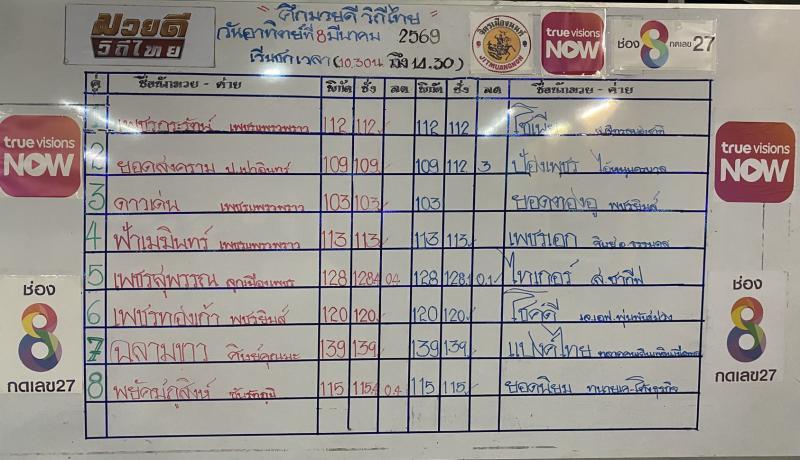 มวยดี
วิถีไทย
"ศึกมวยดี วิถีไทย"
วันอาทิตย์ที่ 8 มีนาคม 2569
(10.30น ถึง 14.30)
จิตรเมืองนนท์
JITMUANGNON
true visions
NOW
ช่อง 8 กดเลข 27
คู่ ชื่อนักมวย - ค่าย พิกัด ชั่ง ลด พิกัด ชั่ง ลด ชื่อนักมวย - ค่าย
1 เพชรภูระรักษ์ เพชรแพรวพราว 112 112 112 112
2 ยอดสงคราม 109 109 109 112 3 ป๋องเพชร
3 ดาวเด่น เพชรแพรวพราว 103 103 103 ยอดทองอู พชรยิมส์
4 ฟ้าเมฆินทร์ เพชรแพรวพราว 113 113 113 113 เพชรเอก
5 เพชรสุพรรณ ลูกเมืองเพชร 128 128.4 0.4 128 128.1 0.1 ไทเกอร์
6 เพชรทองเก้า พชรยิมส์ 120 120 120 120 โชคดี
7 ฉลามขาว ศิษย์คุณนะ 139 139 139 139 แบงค์ไทย
8 พยัคฆ์ภูสิงห์ 115 115.4 0.4 115 115 ยอดนิยม
true visions
NOW
ช่อง
8
กดเลข27
true visions
NOW
ช่อง
8
กดเลข27